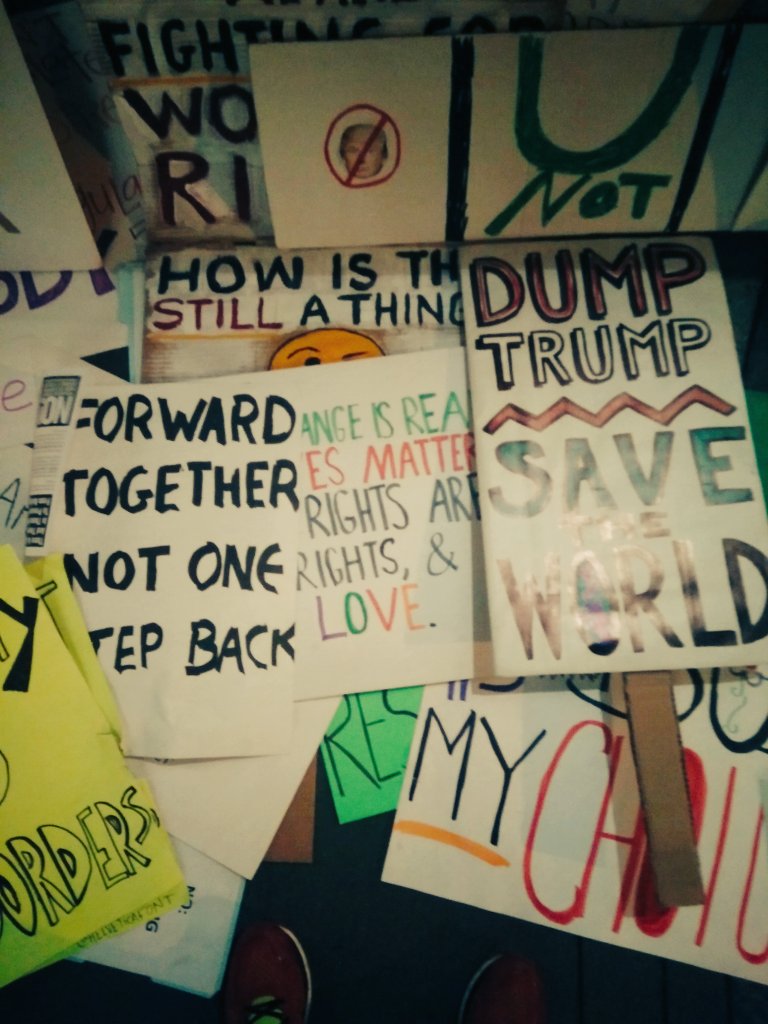 FIGHTING FOR
WO
RI
U
NOT
HOW IS TH
STILL A THING
DUMP
TRUMP
SAVE
THE
WORLD
FORWARD
TOGETHER
NOT ONE
TEP BACK
ON
ANGE IS REA
ES MATTER
RIGHTS ARE
RIGHTS, &
LOVE.
RES
MY
CHOI
ORDERS